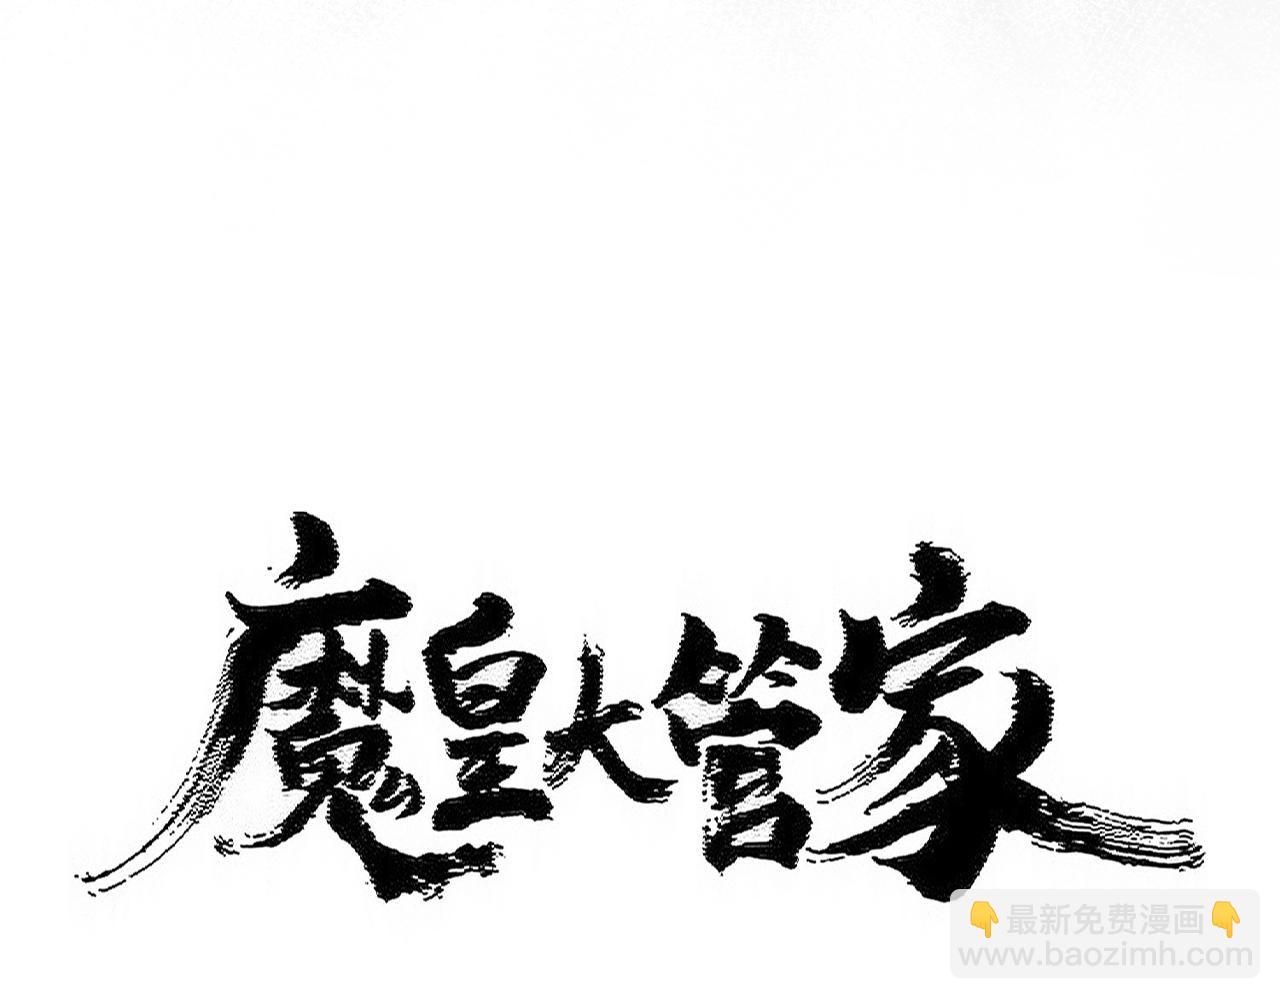 魔皇大管家
👇最新免费漫画👇
www.baozimh.com